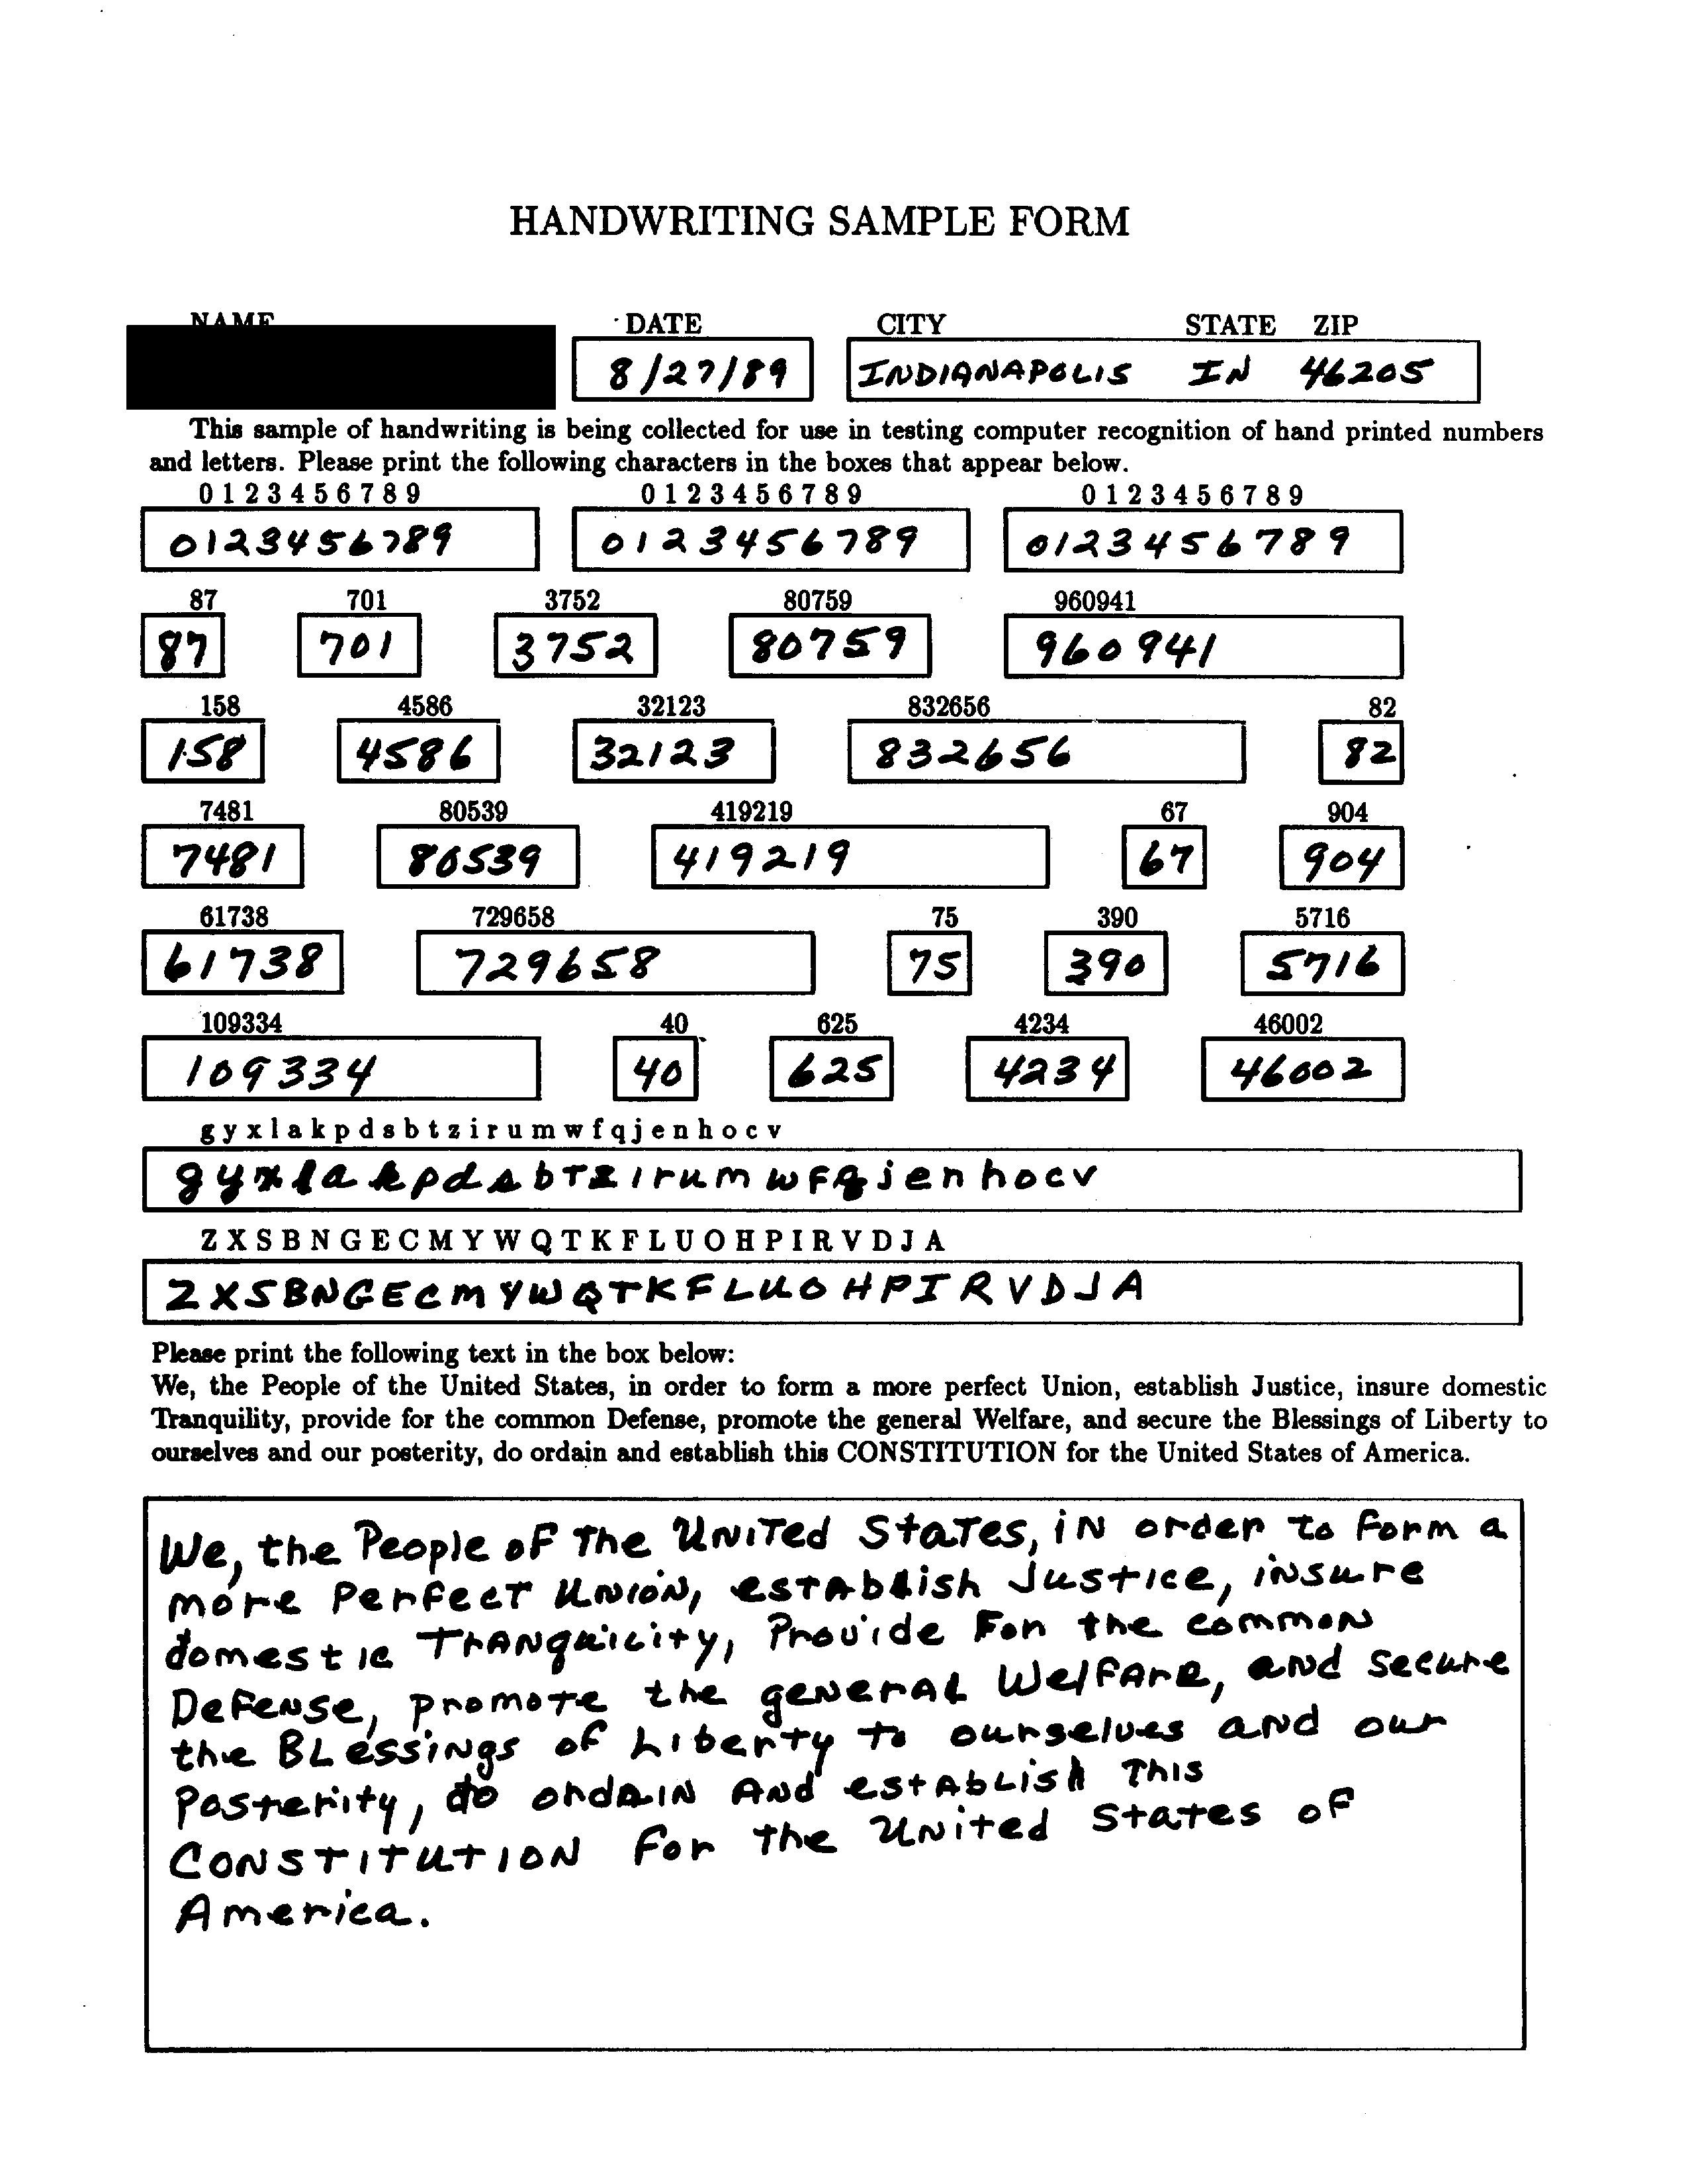 HANDWRITING SAMPLE FORM
NAME DATE CITY STATE ZIP
8/27/89 INDIANAPOLIS IN 46205
This sample of handwriting is being collected for use in testing computer recognition of hand printed numbers
and letters. Please print the following characters in the boxes that appear below.
0 1 2 3 4 5 6 7 8 9 0 1 2 3 4 5 6 7 8 9 0 1 2 3 4 5 6 7 8 9
0123456789 0123456789 0123456789
87 701 3752 80759 960941
87 701 3752 80759 960941
158 4586 32123 832656 82
158 4586 32123 832656 82
7481 80539 419219 67 904
7481 80539 419219 67 904
61738 729658 75 390 5716
61738 729658 75 390 5716
109334 40 625 4234 46002
109334 40 625 4234 46002
g y x l a k p d s b t z i r u m w f q j e n h o c v
gyxlakpdsbTzirumwFqjenhocv
Z X S B N G E C M Y W Q T K F L U O H P I R V D J A
ZXSBNGECMYWQTKFLUOHPIRVDJA
Please print the following text in the box below:
We, the People of the United States, in order to form a more perfect Union, establish Justice, insure domestic
Tranquility, provide for the common Defense, promote the general Welfare, and secure the Blessings of Liberty to
ourselves and our posterity, do ordain and establish this CONSTITUTION for the United States of America.
We, the People oF The UNiTed StaTes, iN order to Form a
more PerFecT UNioN, esTAblish Justice, iNsure
domestic TrANquility, Provide For the commoN
DeFeNse, promoTe the geNerAL WelFAre, aNd secure
the BLessiNgs oF Liberty To ourselves aNd our
Posterity, do ordAiN ANd estAbLish This
CONSTITUTION For the UNited States oF
America.